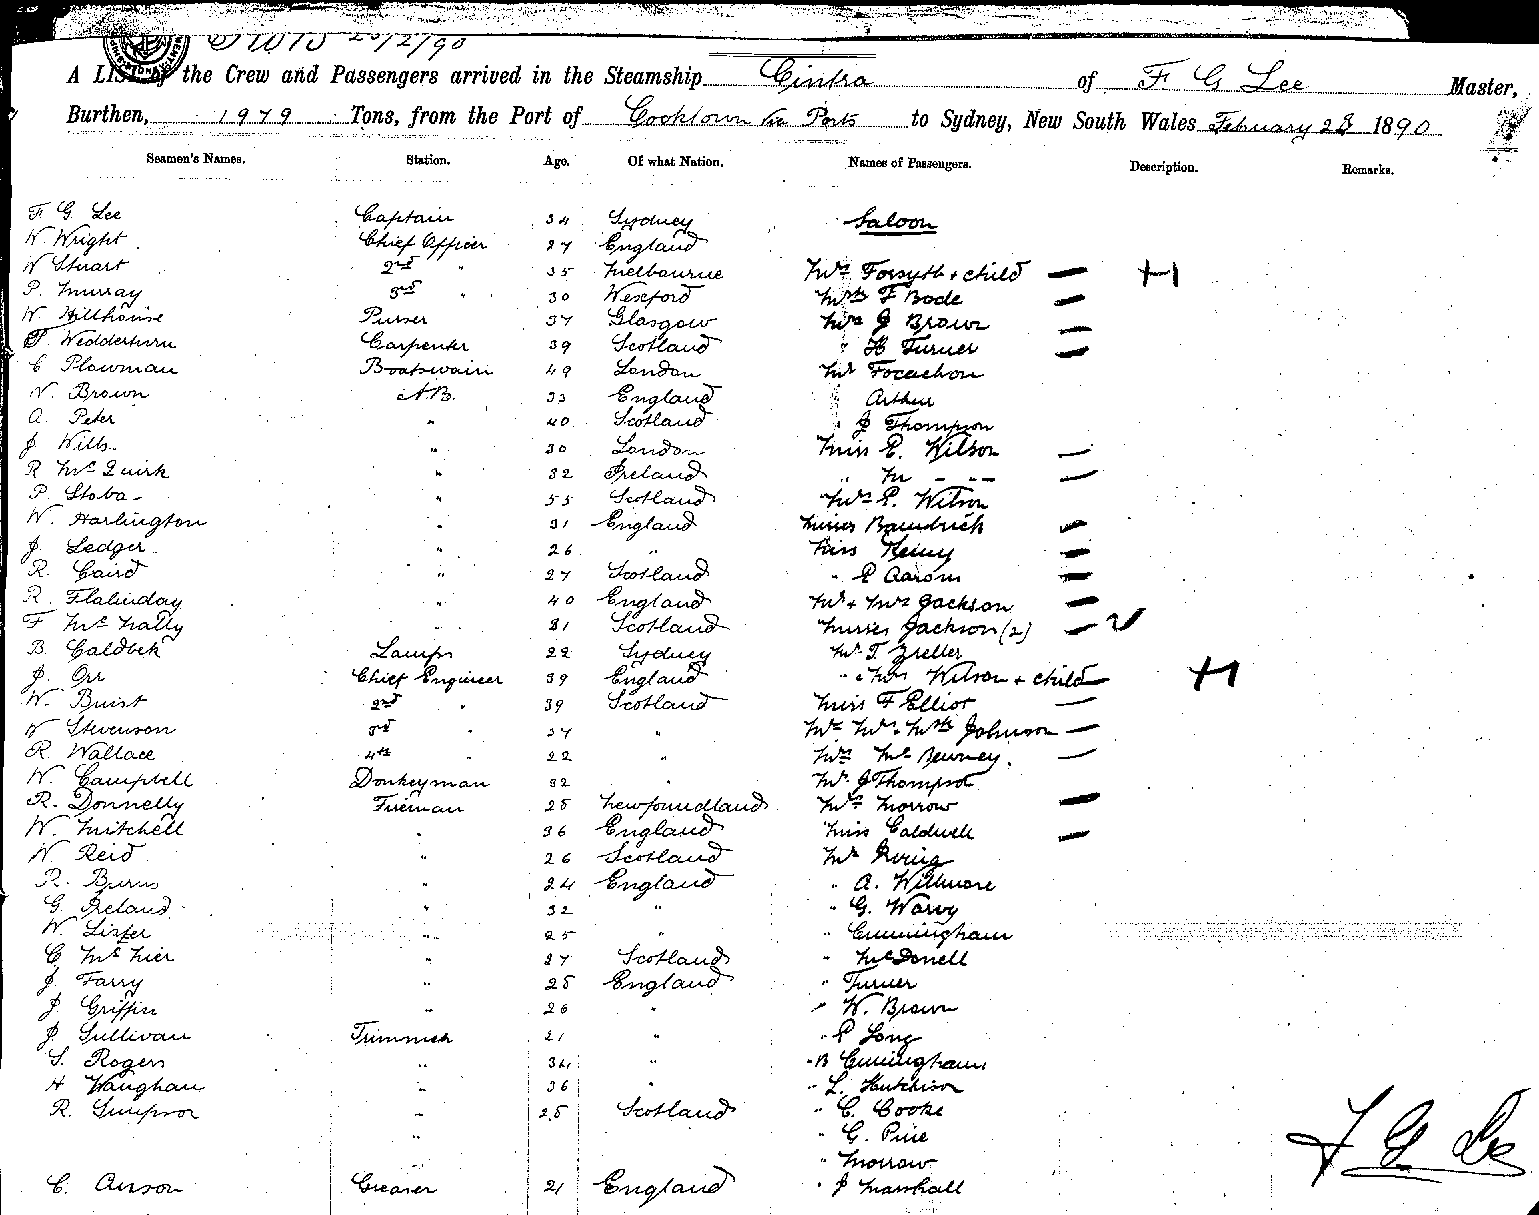 20/2/90
A LIST of the Crew and Passengers arrived in the Steamship Cintra of F G Lee Master,
Burthen, 1979 Tons, from the Port of Cooktown via Ports to Sydney, New South Wales February 28 1890
Seamen's Names. Station. Age. Of what Nation. Names of Passengers. Description. Remarks.
F G Lee Captain 34 Sydney Saloon
W. Wright Chief Officer 27 England
W Stuart 2nd " 35 Melbourne Mrs Forsyth + child
P. Murray 3rd " 30 Wexford F Bode
W. Hillhouse Purser 37 Glasgow Mrs J Brown
T. Wedderburn Carpenter 39 Scotland " H Turner
C Plowman Boatswain 49 London Mr Focachon
W. Brown A.B. 33 England Arthur
A. Peter " 40 Scotland " J Thompson
J Wills " 30 London Miss E. Wilson
R McQuirk " 32 Ireland " M - --
P. Stoba " 55 Scotland Mrs P. Wilson
W. Harlington " 31 England Misses
J. Ledger " 26 " Miss
R. Caird " 27 Scotland " Aarons
R. " 40 England Mr + Mrs Jackson
F McNally " 31 Scotland Misses Jackson (2)
B. Caldbek Lamps 22 Sydney Mr T. Zreller
J. Orr Chief Engineer 39 England " Wilson + child
W. Buist 2nd " 39 Scotland Miss F Elliot
W Stevenson 3rd " 27 " Johnson
R Wallace 4th " 22 " Mrs
W. Campbell Donkeyman 32 " Mr J Thompson
R. Donnelly Fireman 25 Newfoundland Mrs Morrow
W. Mitchell " 36 England Miss Caldwell
W Reid " 26 Scotland Mr
R. Burns " 24 England " A. Willmore
G. Ireland " 32 " " G.
W. Lister " 25 " " Cunningham
C " 27 Scotland " McDonell
J Farry " 25 England " Turner
J. Griffin " 26 " " W. Brown
J Sullivan Trimmer 21 " " P Long
S. Rogers " 34 " " B Cunningham
H Vaughan " 36 " " L. Hutchison
R. Simpson " 25 Scotland " C. Cooke
" " G. Pine
" " Morrow
C. Anson Greaser 21 England " J Marshall
F G Lee